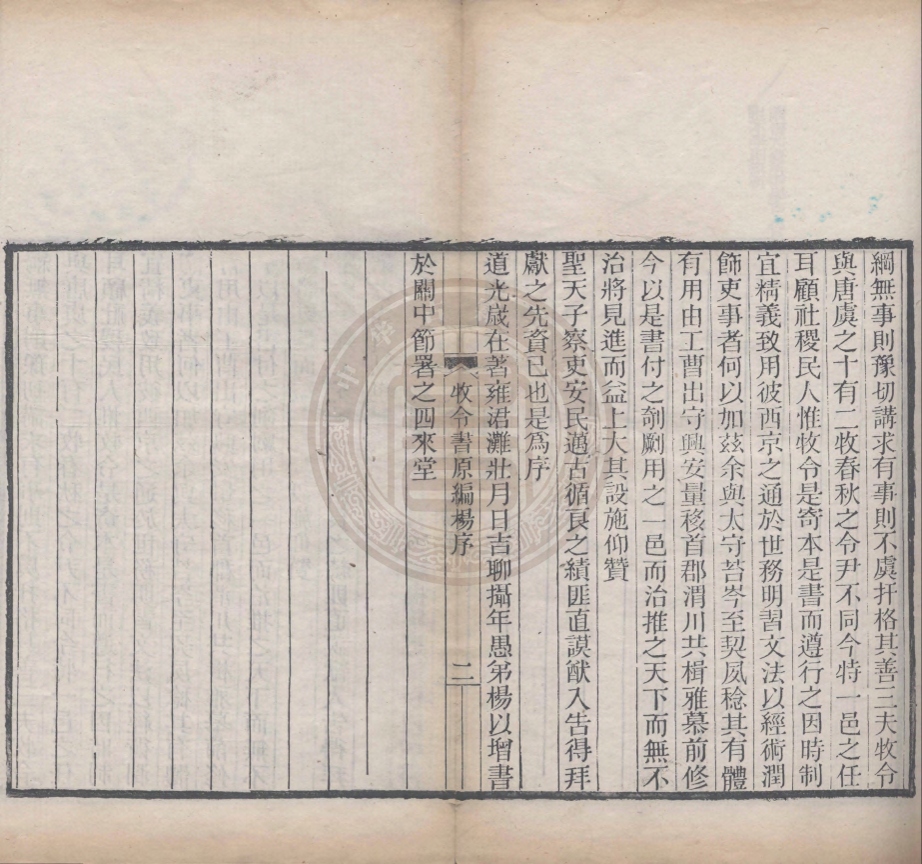 綱無事則豫切講求有事則不虞扞格其善三夫牧令
與唐虞之十有二牧春秋之令尹不同今特一邑之任
耳顧社稷民人惟牧令是寄本是書而遵行之因時制
宜精義致用彼西京之通於世務明習文法以經術潤
飾吏事者何以加茲余與太守苔岑至契夙稔其有體
有用由工曹出守興安量移首郡渭川共楫雅慕前修
今以是書付之剞劂用之一邑而治推之天下而無不
治將見進而益上大其設施仰贊
聖天子察吏安民邁古循良之績匪直謨猷入告得拜
獻之先資已也是為序
道光嵗在著雍涒灘壯月日吉聊攝年愚弟楊以增書
牧令書原編楊序　二
於關中節署之四來堂